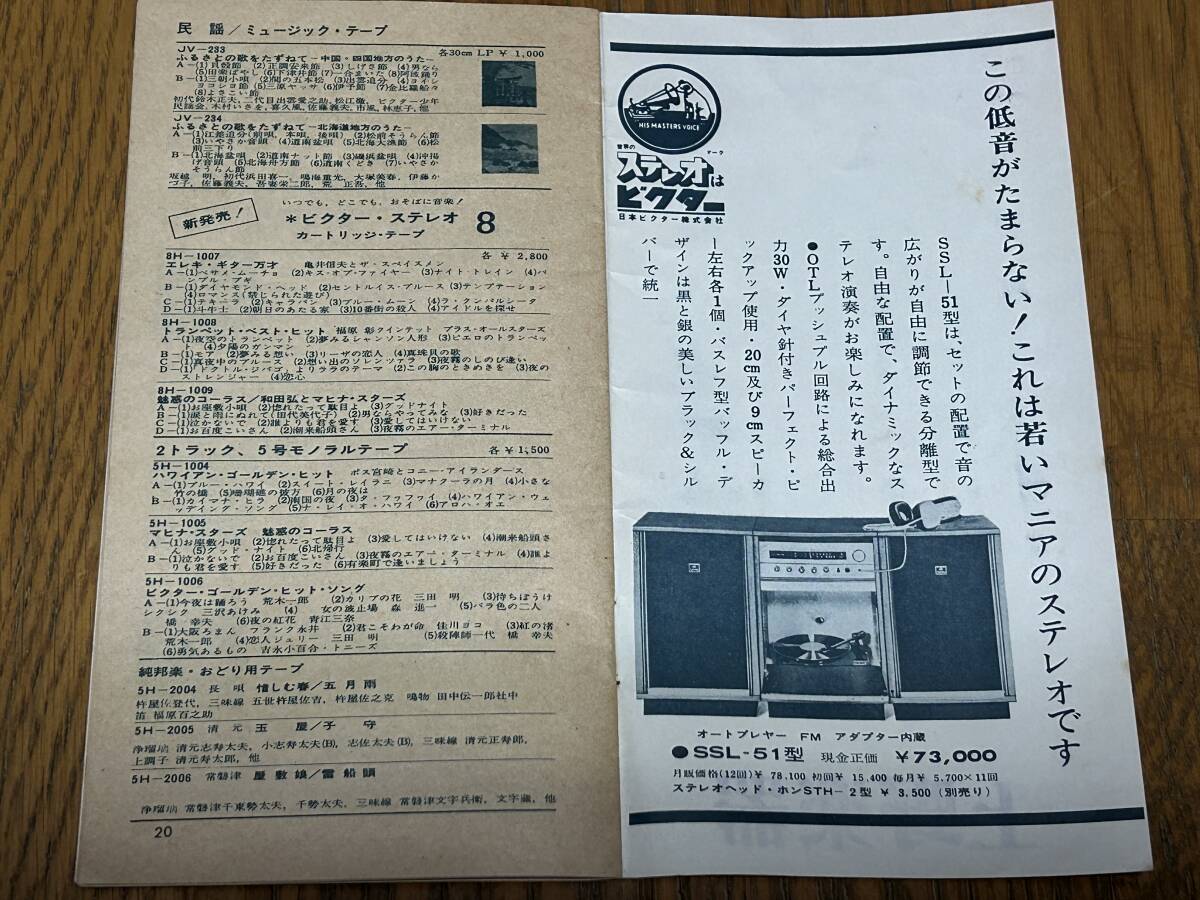 民謡/ミュージック・テープ
JV-233 各30cm LP ¥1,000
ふるさとの歌をたずねて-中国・四国地方のうた-
A-(1)貝殻節 (2)正調安来節 (3)しげさ節 (4)男なら
(5)田楽ばやし (6)下津井節 (7)一合まいた (8)阿波踊り
B-(1)三朝小唄 (2)関の五本松 (3)出雲追分 (4)ヨイショコショ節
(5)三原ヤッサ (6)伊予節 (7)金比羅船々
(8)よさこい節
初代鈴木正夫、二代目出雲愛之助、松江徹、ビクター少年
民謡会、木村いさを、喜久風、佐藤義夫、市風、林恵子、他
JV-234
ふるさとの歌をたずねて-北海道地方のうた-
A-(1)江差追分(前唄、本唄、後唄) (2)松前そうらん節
(3)いやさか音頭 (4)道南盆唄 (5)北海大漁節 (6)松
前三下り
B-(1)北海盆唄 (2)道南ナット節 (3)磯浜盆唄 (4)沖揚
げ音頭 (5)北海舟方節 (6)道南くどき (7)いやさか
そうらん節
坂越 明、初代浜田喜一、鳴海重光、大塚美春、伊藤か
づ子、佐藤義夫、吾妻栄二郎、荒 正吾、他
いつでも、どこでも、おそばに音楽!
新発売!
*ビクター・ステレオ 8
カートリッジ・テープ
8H-1007 各 ¥2,800
エレキ・ギター万才 亀井信夫とザ・スペイスメン
A-(1)ベサメ・ムーチョ (2)キス・オブ・ファイヤー (3)ナイト・トレイン (4)バ
ンブル・ブギ
B-(1)ダイヤモンド・ヘッド (2)セントルイス・ブルース (3)テンプテーション
(4)ロマンス(禁じられた遊び)
C-(1)テキーラ (2)キャラバン (3)ブルー・ムーン (4)ラ・クンパルシータ
D-(1)斗牛士 (2)朝日のあたる家 (3)10番街の殺人 (4)アイドルを探せ
8H-1008
トランペット・ベスト・ヒット 福原 彰クインテット ブラス・オールスターズ
A-(1)夜空のトランペット (2)夢みるシャンソン人形 (3)ピエロのトランペッ
ト (4)夕陽のガンマン
B-(1)モア (2)夢みる想い (3)リーザの恋人 (4)真珠貝の歌
C-(1)真夜中のブルース (2)想い出のソレンツァラ (3)夜霧のしのび逢い
D-(1)「ドクトル・ジバゴ」よりララのテーマ (2)この胸のときめきを (3)夜の
ストレンジャー (4)恋心
8H-1009
魅惑のコーラス/和田弘とマヒナ・スターズ
A-(1)お座敷小唄 (2)惚れたって駄目よ (3)グッドナイト
B-(1)涙と雨にぬれて(田代美代子) (2)男ならやってみな (3)好きだった
C-(1)泣かないで (2)誰よりも君を愛す (3)愛してはいけない
D-(1)お百度こいさん (2)潮来船頭さん (3)夜霧のエアー・ターミナル
2トラック、5号モノラルテープ 各¥1,500
5H-1004
ハワイアン・ゴールデン・ヒット ポス宮崎とコニー・アイランダース
A-(1)ブルー・ハワイ (2)スイート・レイラニ (3)マナクーラの月 (4)小さな
竹の橋 (5)珊瑚礁の彼方 (6)月の夜は
B-(1)カイマナ・ヒラ (2)南国の夜 (3)タ・フアフアイ (4)ハワイアン・ウェ
ッディング・ソング (5)ナ・レイ・オ・ハワイ (6)アロハ・オエ
5H-1005
マヒナ・スターズ 魅惑のコーラス
A-(1)お座敷小唄 (2)惚れたって駄目よ (3)愛してはいけない (4)潮来船頭さ
ん (5)グッド・ナイト (6)北帰行
B-(1)泣かないで (2)お百度こいさん (3)夜霧のエアー・ターミナル (4)誰よ
りも君を愛す (5)好きだった (6)有楽町で逢いましょう
5H-1006
ビクター・ゴールデン・ヒット・ソング
A-(1)今夜は踊ろう 荒木一郎 (2)カリブの花 三田 明 (3)待ちぼうけ
シクシク 三沢あけみ (4) 女の波止場 森 進一 (5)バラ色の二人
橋 幸夫 (6)夜の紅花 青江三奈
B-(1)大阪ろまん フランク永井 (2)君こそわが命 佳川ヨコ (3)紅の渚
荒木一郎 (4)恋人ジュリー 三田 明 (5)殺陣師一代 橋 幸夫
(6)勇気あるもの 吉永小百合・トニーズ
純邦楽・おどり用テープ
5H-2004 長 唄 惜しむ春/五月雨
杵屋佐登代、三味線 五世杵屋佐吉、杵屋佐之克 鳴物 田中伝一郎社中
笛 福原百之助
5H-2005 清 元 玉 屋/子 守
浄瑠璃 清元志寿太夫、小志寿太夫(B)、志佐太夫(B)、三味線 清元正寿郎、
上調子 清元寿太郎、他
5H-2006 常磐津 屋敷娘/雷船頭
浄瑠璃 常磐津千東勢太夫、千勢太夫、三味線 常磐津文字兵衛、文字蔵、他
20
この低音がたまらない!これは若いマニアのステレオです
HIS MASTERS VOICE
世界の マーク
ステレオは
ビクター
日本ビクター株式会社
SSL-51型は、セットの配置で音の
広がりが自由に調節できる分離型で
す。自由な配置で、ダイナミックなス
テレオ演奏がお楽しみになれます。
●OTLプッシュプル回路による総合出
力30W・ダイヤ針付きパーフェクト・ピ
ックアップ使用・20cm及び9cmスピーカ
ー左右各1個・バスレフ型バッフル・デ
ザインは黒と銀の美しいブラック&シル
バーで統一
オートプレヤー FM アダプター内蔵
●SSL-51型 現金正価 ¥73,000
月販価格(12回)¥ 78,100 初回¥ 15,400 毎月¥ 5,700×11回
ステレオヘッド・ホンSTH-2型 ¥ 3,500(別売り)